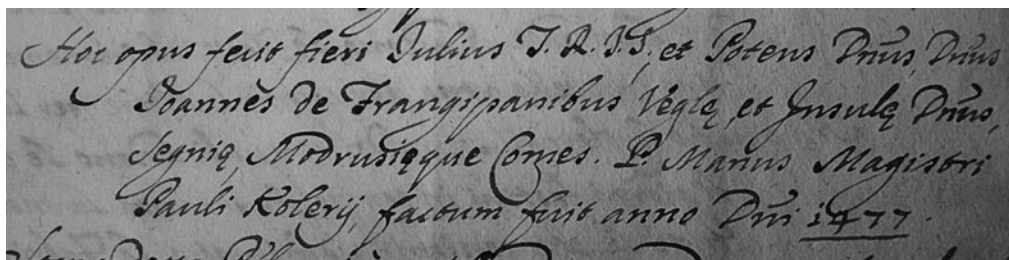 Hoc opus fecit fieri Julius I. R. I. S. et Potens Dnus, Dnus
Joannes de Frangipanibus Veglę, et Insulę Dnus,
Segnię, Modrusięque Comes. P. Manus Magistri
Pauli Kolerij, factum fuit anno Dni 1477.